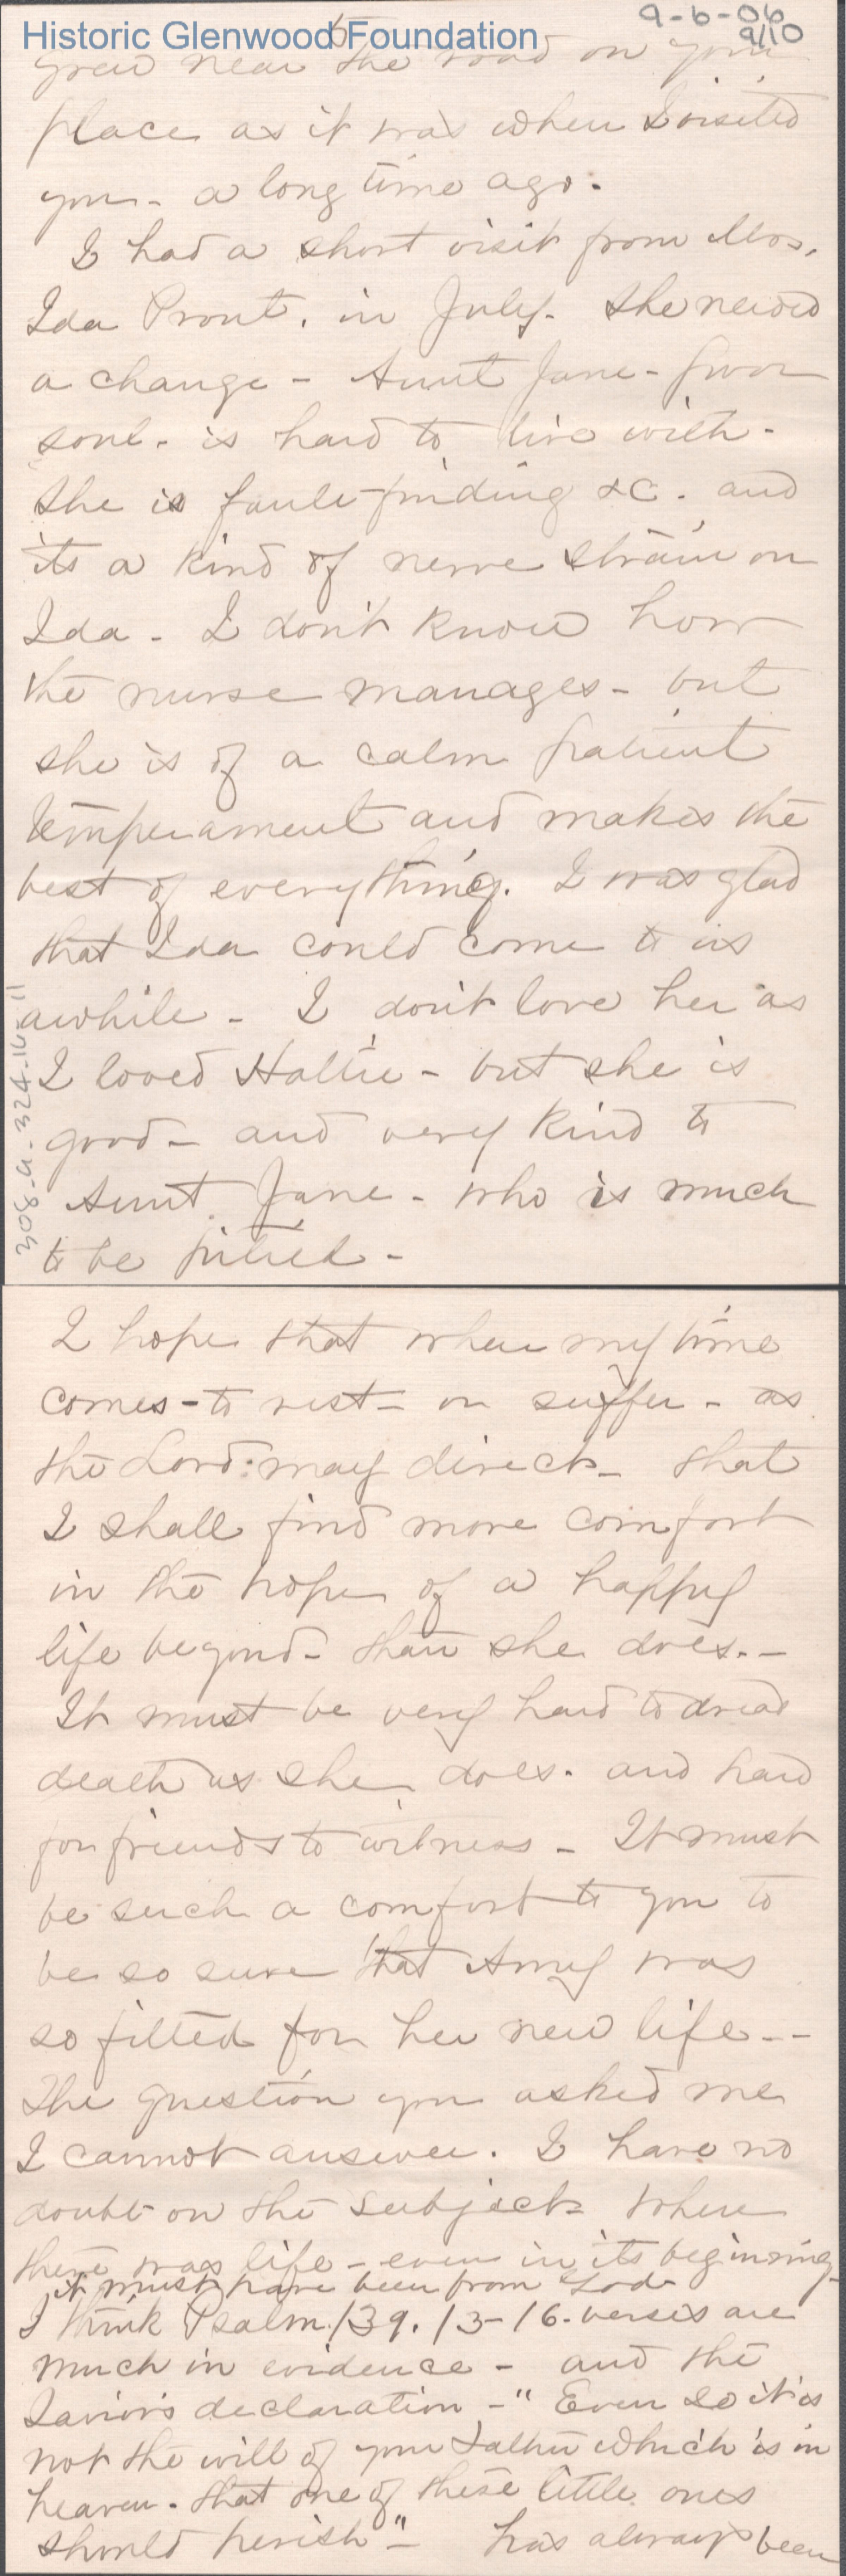 9-6-06
9/10
Historic Glenwood Foundation
5
grew near the road on your
place as it was when I visited
you - a long time ago.
I had a short visit from Mrs.
Ida Prout. in July. She needed
a change - Aunt Jane - poor
soul - is hard to live with -
She is fault-finding &c. and
its a kind of nerve strain on
Ida - I don't know how
the nurse manages - but
she is of a calm patient
temperament and makes the
best of everything. I was glad
that Ida could come to us
awhile - I don't love her as
I loved Hattie - but she is
good - and very kind to
Aunt Jane - who is much
to be pitied -
308-a-324.16-11
I hope that when my time
comes - to rest - or suffer - as
the Lord may direct - that
I shall find more comfort
in the hope of a happy
life beyond - than she does. -
It must be very hard to dread
death as she does. and hard
for friends to witness - It must
be such a comfort to you to
be so sure that Amy was
so fitted for her new life - -
The question you asked me
I cannot answer. I have no
doubt on the subject where
there was life - even in its beginning -
it must have been from God
I think Psalm 139. 13-16. verses are
much in evidence - and the
Savior's declaration - "Even so it is
not the will of your Father which is in
heaven. that one of these little ones
should perish" - has always been